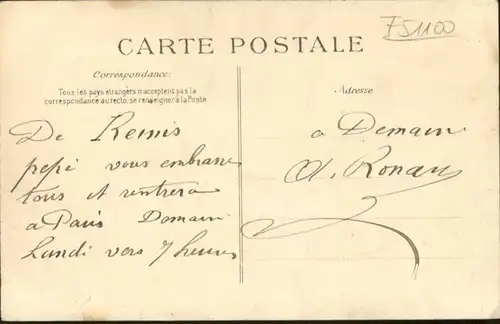 F51100
CARTE POSTALE
Correspondance:
Tous les pays étrangers n'acceptent pas la
correspondance au recto, se renseigner à la Poste
Adresse
De Reims
pepé vous embrasse
tous et rentrera
a Paris Demain
Lundi vers 7 heures
a Demain
A. Ronan